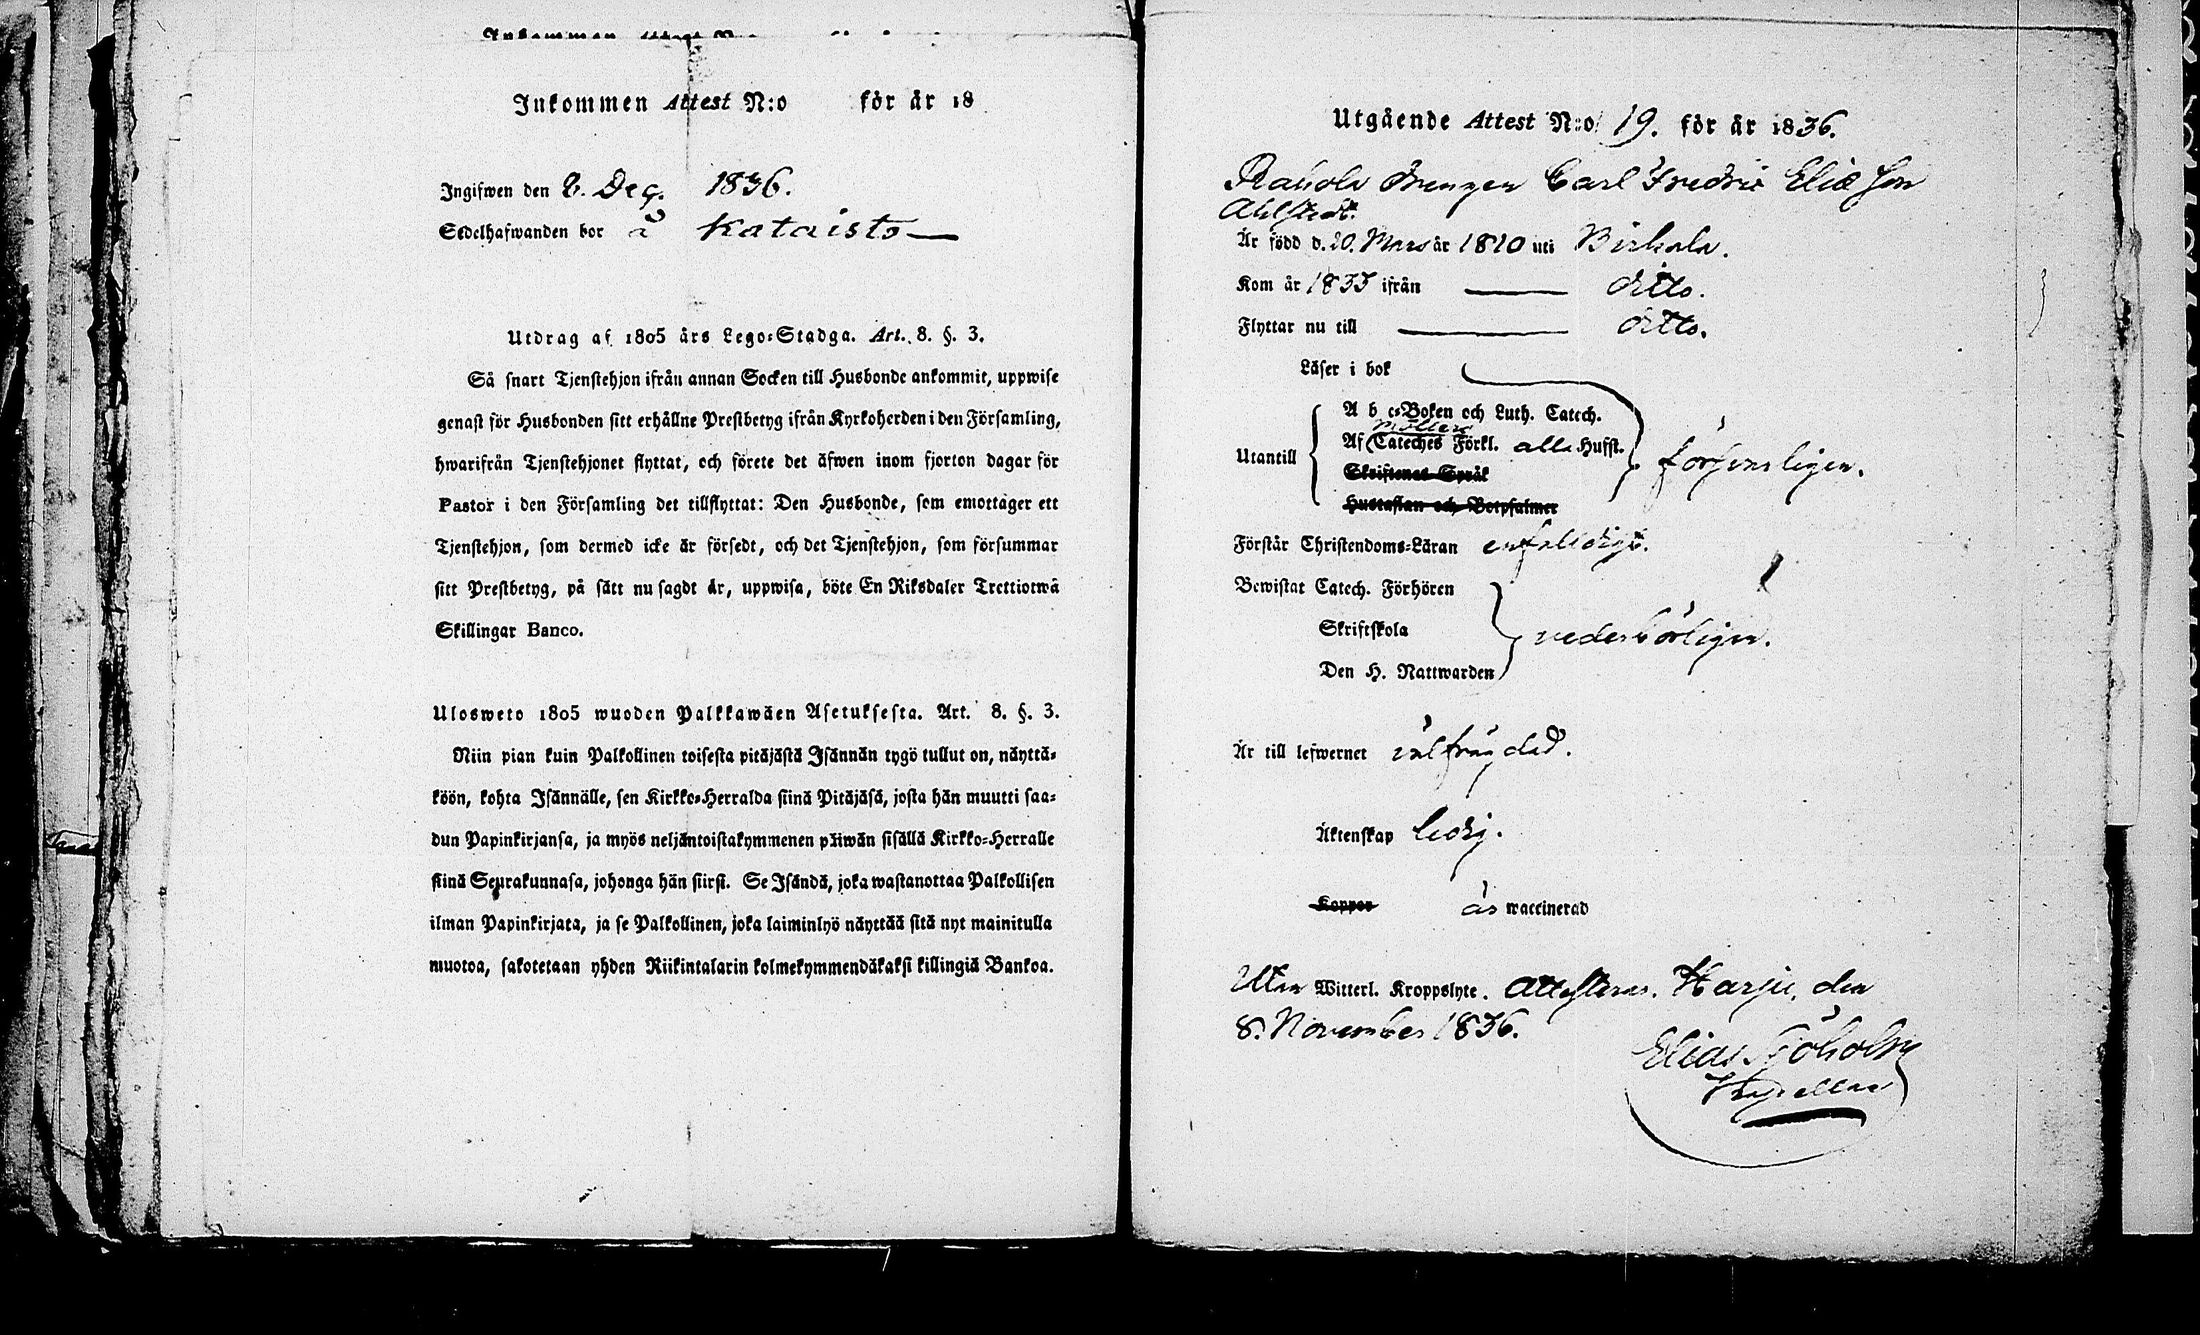 Inkommen Attest N:o för år 18
Ingifwen den 8. Dec. 1836.
Sedelhafwanden bor å Kataisto
Utdrag af 1805 års Lego-Stadga. Art. 8. §. 3.
Så snart Tjenstehjon ifrån annan Socken till Husbonde ankommit, uppwise
genast för Husbonden sitt erhållne Prestbetyg ifrån Kyrkoherden i den Församling,
hwarifrån Tjenstehjonet flyttat, och förete det äfwen inom fjorton dagar för
Pastor i den Församling det tillflyttat: Den Husbonde, som emottager ett
Tjenstehjon, som dermed icke är försedt, och det Tjenstehjon, som försummar
sitt Prestbetyg, på sätt nu sagdt är, uppwisa, böte En Riksdaler Trettiotwå
Skillingar Banco.
Ulosweto 1805 wuoden Palkkawäen Asetuksesta. Art. 8. §. 3.
Niin pian kuin Palkollinen toisesta pitäjästä Isännän tygö tullut on, näyttä-
köön, kohta Isännälle, sen Kirkko-Herralda siinä Pitäjäsä, josta hän muutti saa-
dun Papinkirjansa, ja myös neljäntoistakymmenen päiwän sisällä Kirkko-Herralle
siinä Seurakunnasa, johonga hän siirsi. Se Isändä, joka wastanottaa Palkollisen
ilman Papinkirjata, ja se Palkollinen, joka laiminlyö näyttää sitä nyt mainitulla
muotoa, sakotetaan yhden Riikintalarin kolmekymmendäkaksi killingiä Bankoa.
Utgående Attest N:o 19. för år 1836.
Rahola Drengen Carl Fredric Eliæ Son
Ahlstedt.
Är född d. 20. Mars år 1810 uti Birkala.
Kom år 1833 ifrån ditto.
Flyttar nu till ditto.
Läser i bok
A b c-Boken och Luth. Catech.
Möllers
Utantill Af Cateches Förkl. alla Hufst. försvarligen.
Skriftenes Språk
Hustaflan och Botpsalmer
Förstår Christendoms-Läran enfaldigt.
Bewistat Catech. Förhören
Skriftskola vederbörligen.
Den H. Nattwarden
Är till lefwernet välfrägdad.
Äktenskap ledig.
Koppor är waccinerad
Utan Witterl. Kroppslyte. Attesterar. Harju, den
8. November 1836.
Elias Sjöholm
Kapellan